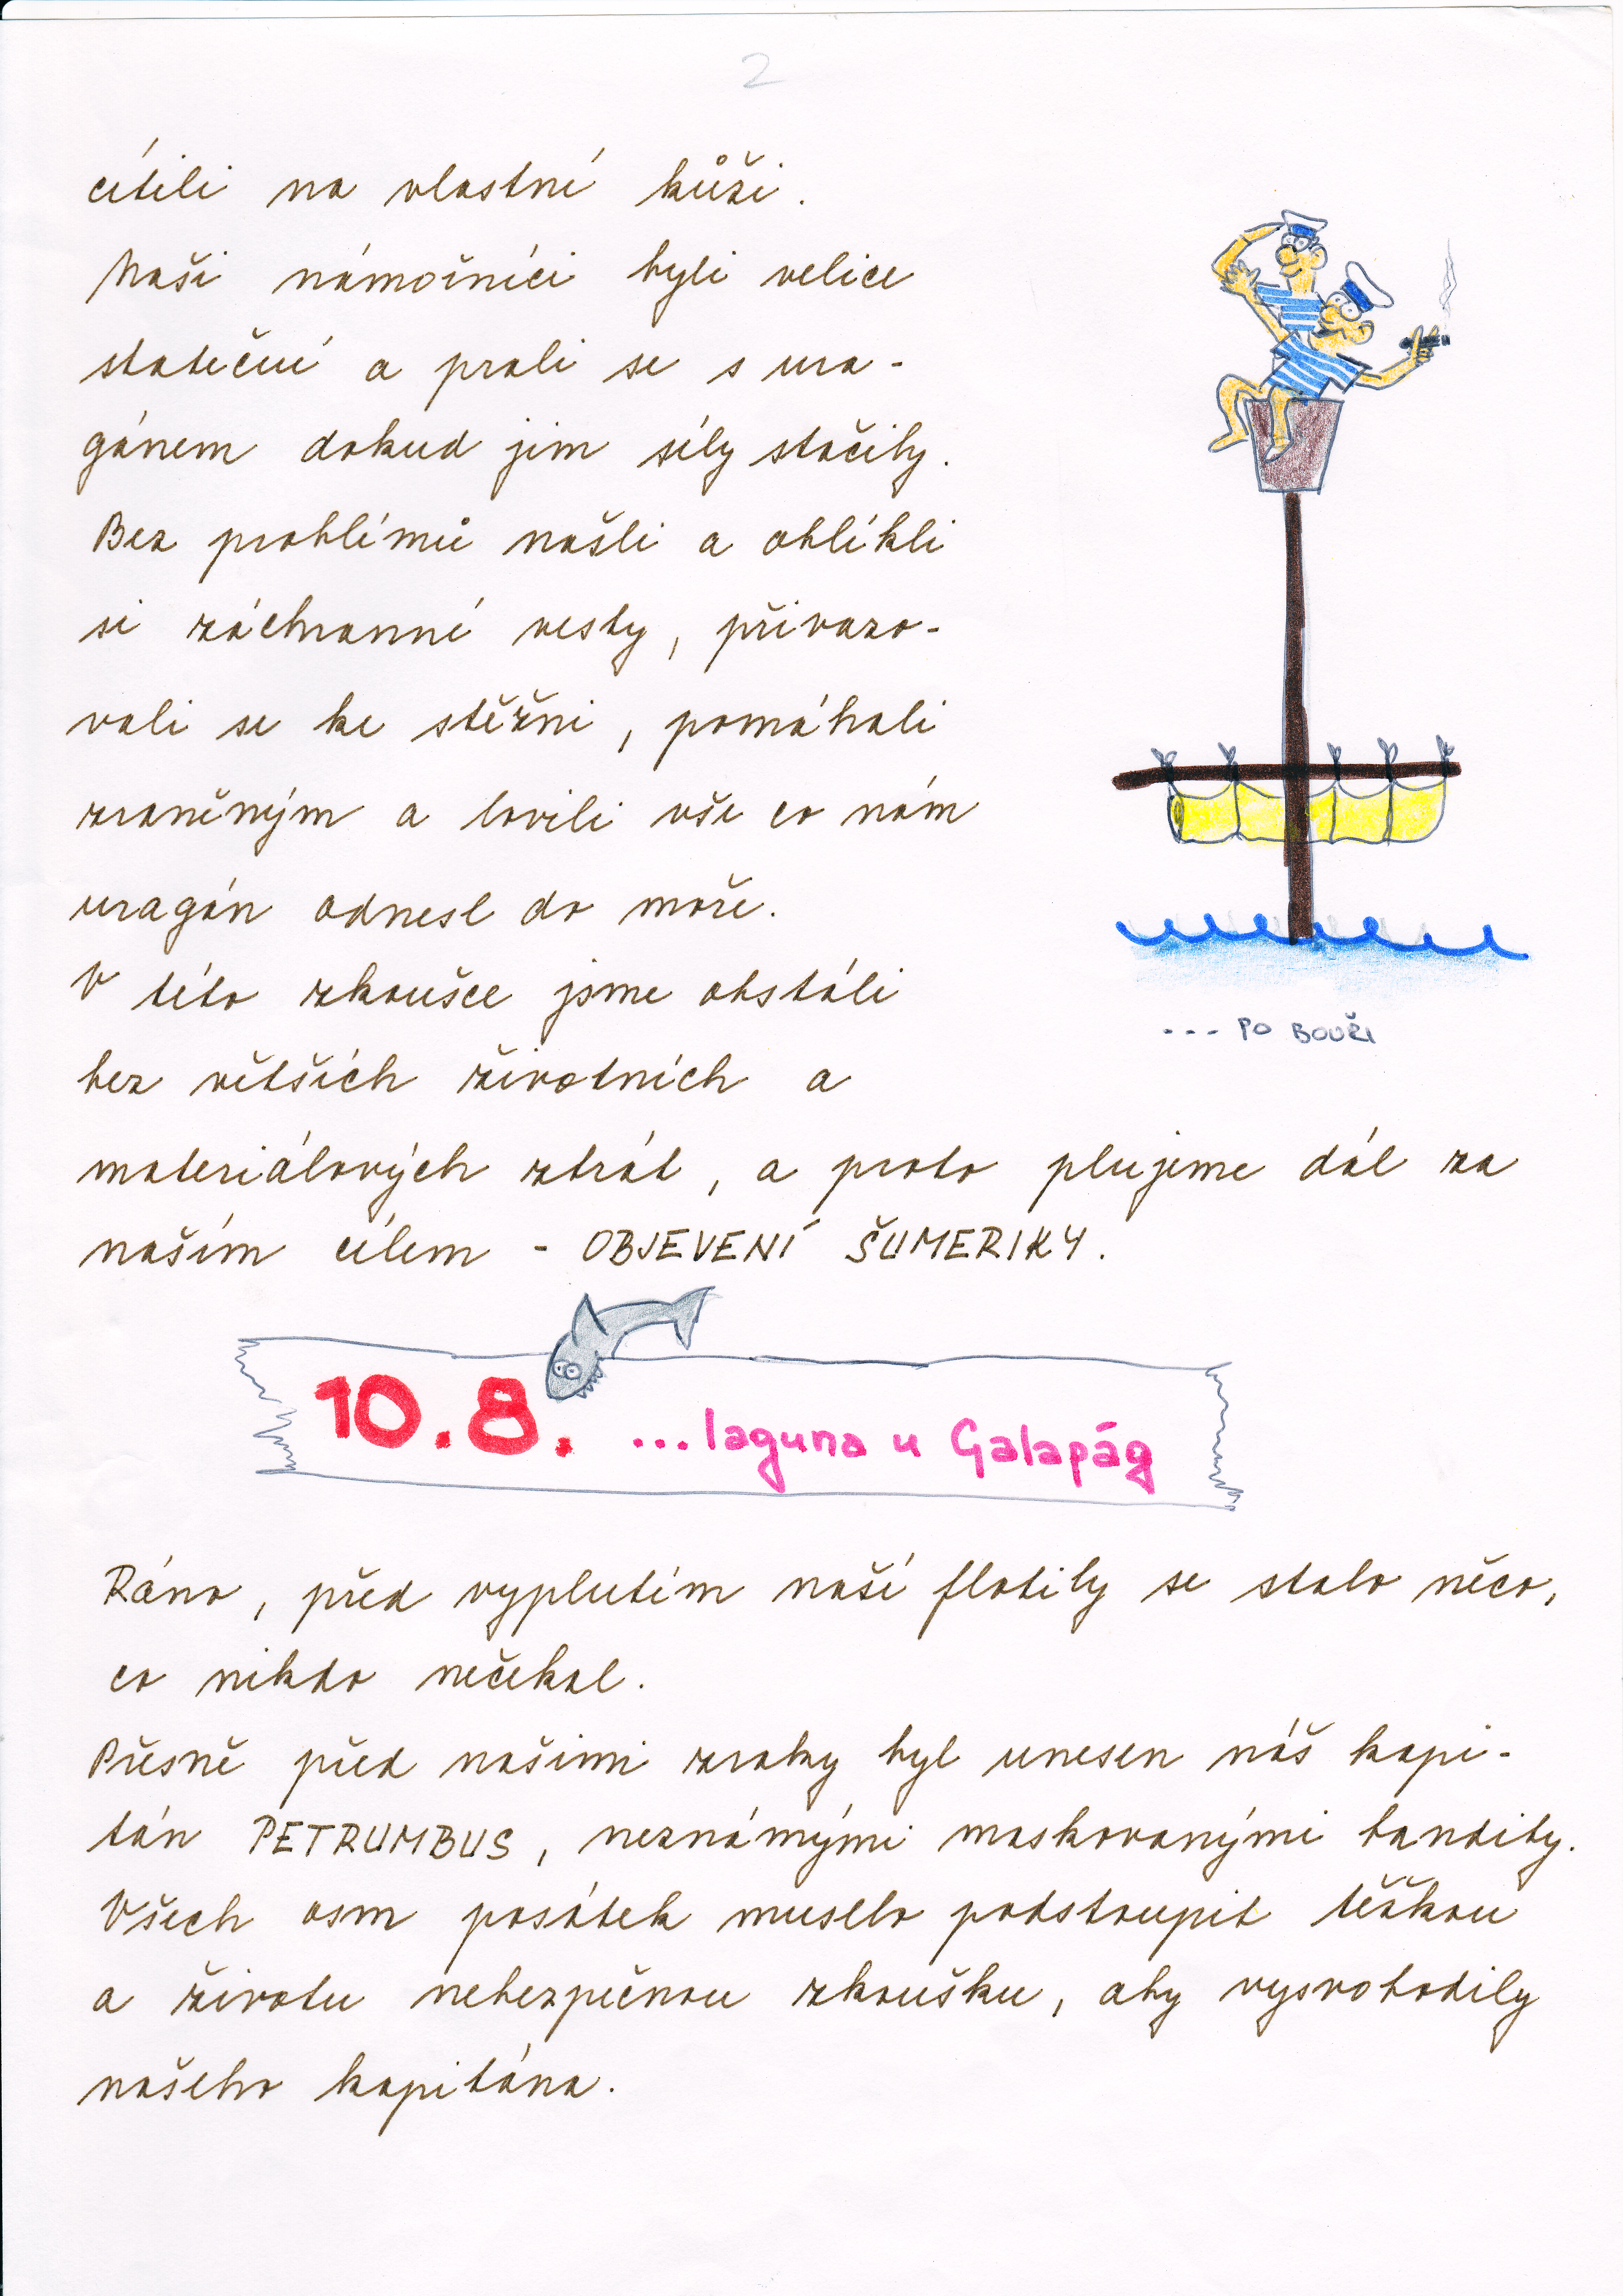 2
cítili na vlastní kůži.
Naši námořníci byli velice
stateční a prali se s ura-
gánem dokud jim síly stačily.
Bez problémů našli a oblékli
si záchranné vesty, přivazo-
vali se ke stěžni, pomáhali
zraněným a lovili vše co nám
uragán odnesl do moře.
V této zkoušce jsme obstáli
bez větších životních a
materiálových ztrát, a proto plujeme dál za
naším cílem - OBJEVENÍ ŠUMERIKY.
... PO BOUŘI
10.8. ...laguna u Galapág
Ráno, před vyplutím naší flotily se stalo něco,
co nikdo nečekal.
Přesně před našimi zraky byl unesen náš kapi-
tán PETRUMBUS, neznámými maskovanými bandity.
Všech osm posádek muselo podstoupit těžkou
a životu nebezpečnou zkoušku, aby vysvobodily
našeho kapitána.